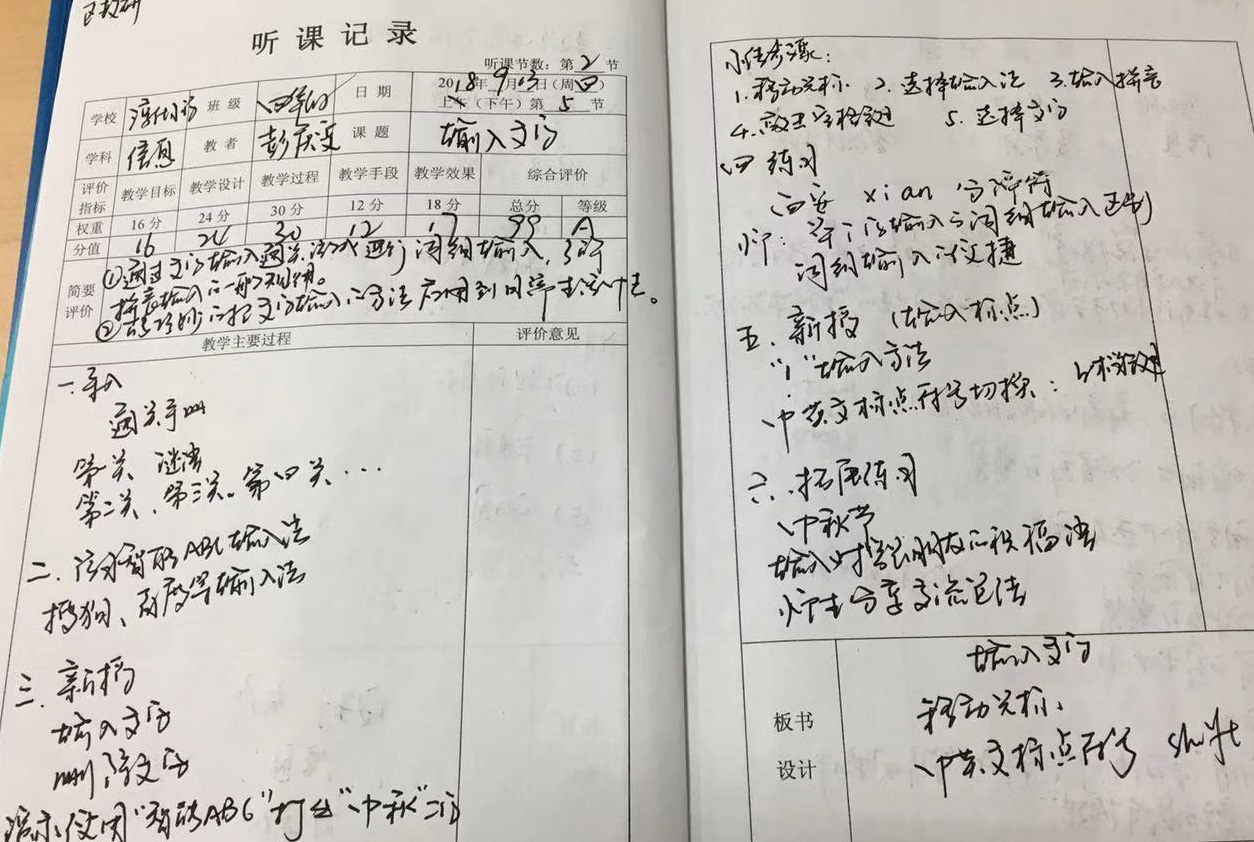 区教研
听课记录
听课节数：第2节
学校 班级 四年 日期 2018年9月13日（周四）
上午（下午）第5节
学科 信息 教者 彭庆 课题 输入文字
评价指标 教学目标 教学设计 教学过程 教学手段 教学效果 综合评价
权重 16分 24分 30分 12分 18分 总分 等级
分值 16 24 30 12 17 99 A
简要评价 ①通过文字输入通关游戏进行词组输入，了解
拼音输入的一般规律。
②巧妙的把文字输入的方法应用到日常生活中去。
教学主要过程 评价意见
一.导入
通关
第一关 谜语
第二关、第三关。第四关...
二.认识智能ABC输入法
搜狗、百度等输入法
三.新授
输入文字
删除文字
演示使用"智能ABC"打出"中秋"二字
小结步骤：
1.移动光标. 2.选择输入法 3.输入拼音
4.敲击空格键 5.选择文字
四 练习
西安 xi an 分隔符
师：单个字输入与词组输入区别
词组输入法文捷
五.新授（输入标点）
"、"输入方法
中英文标点符号切换：
六.拓展练习
中秋节
输入对老师朋友的祝福语
师生分享交流
板书设计
输入文字
移动光标、
中英文标点符号 shift